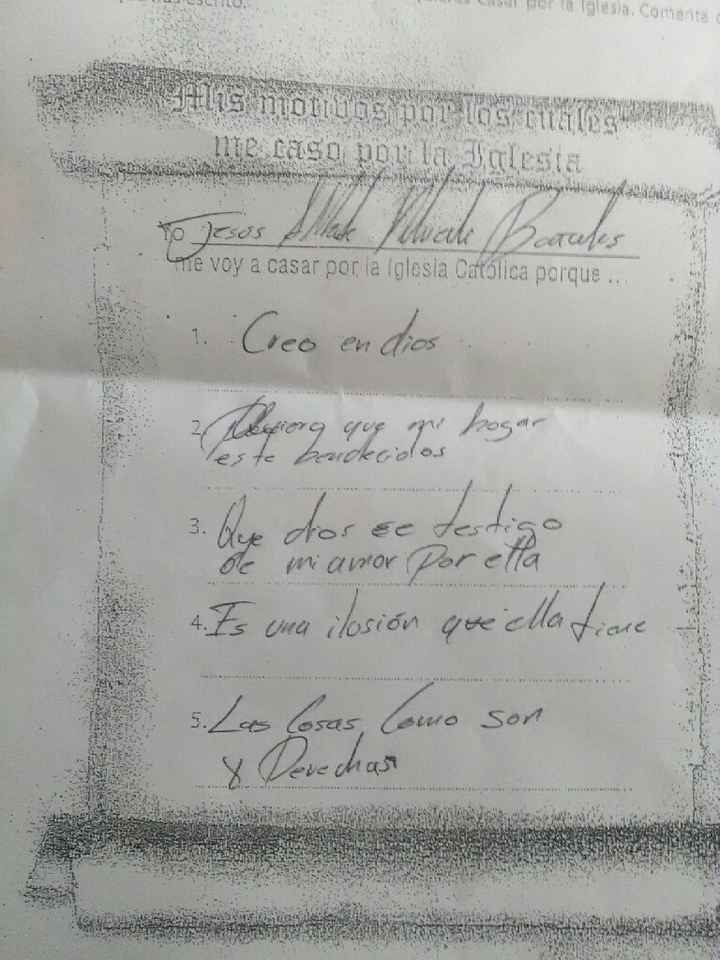 escrito.
casar por la Iglesia. Comenta
Mis motivos por los cuales
me caso por la Iglesia
Yo Jesús
me voy a casar por la Iglesia Católica porque ...
1. Creo en dios
2. que mi hogar
este bendecidos
3. Que dios se testigo
de mi amor por ella
4. Es una ilosión que ella tiene
5. Las Cosas Como son
y Derechas